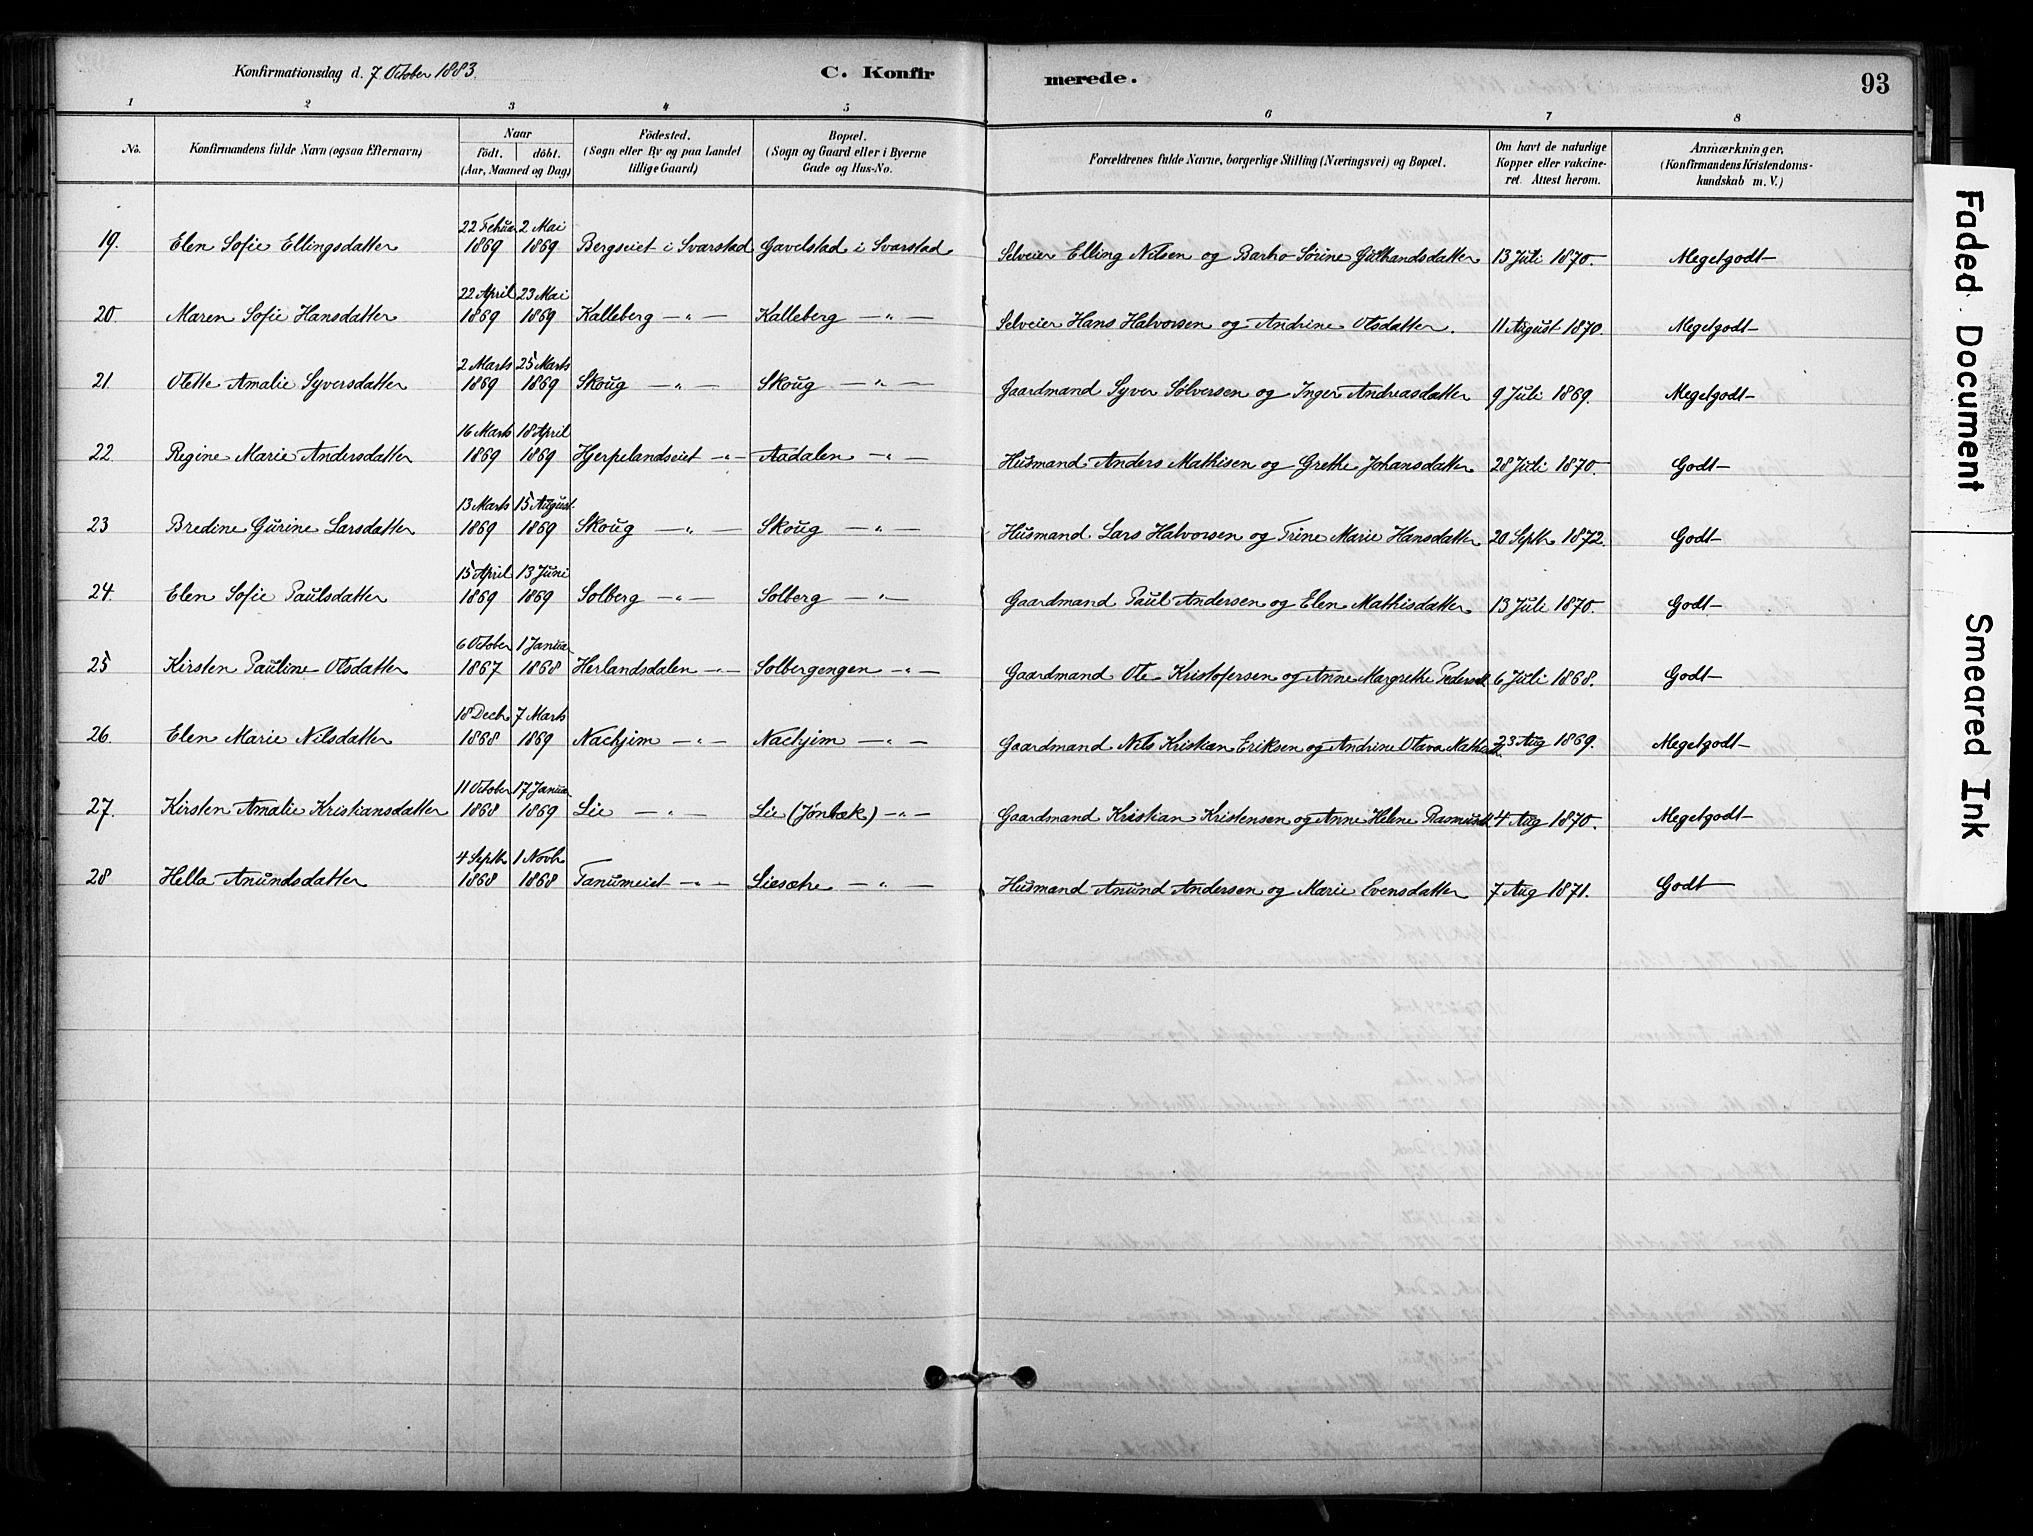 Konfirmationsdag d. 7 October 1883. C. Konfir merede. 93
1 2 3 4 5 6 7 8
No. Konfirmandens fulde Navn (ogsaa Efternavn) Naar födt. döbt. (Aar, Maaned og Dag) Födested. (Sogn eller By og paa Landet tillige Gaard) Bopæl. (Sogn og Gaard eller i Byerne Gade og Hus-No. Forældrenes fulde Navne, borgerlige Stilling (Næringsvei) og Bopæl. Om havt de naturlige Kopper eller vakcineret. Attest herom. Anmærkninger, (Konfirmandens Kristendomskundskab m. V.)
22 Febua 2 Mai
19. Elen Sofie Ellingsdatter 1869 1869 Bergseiet i Svarstad Gavelstad i Svarstad Selveier Elling Nilsen og Barho Sørine Gulhandsdatter 13 Juli 1870. Megetgodt
22 April 23 Mai
20. Maren Sofie Hansdatter 1869 1869 Kalleberg — " — Kalleberg — " — Selveier Hans Halvorsen og Andrine Olsdatter. 11 August 1870. Megetgodt
2 Marts 25 Marts
21. Olette Amalie Syversdatter 1869 1869 Skoug — " — Skoug — " — Gaardmand Syver Sølversen og Inger Andreasdatter 9 Juli 1869. Megetgodt
16 Marts 18 April
22. Regine Marie Andersdatter 1869 1869 Hjerpelandseiet — " — Aadalen — " — Husmand Anders Mathisen og Grethe Johansdatter 28 Juli 1870. Godt
13 Marts 15 August
23 Bredine Gurine Larsdatter 1869 1869 Skoug — " — Skoug — " — Husmand Lars Halvorsen og Trine Marie Hansdatter 20 Septb 1872. Godt
15 April 13 Juni
24. Elen Sofie Paulsdatter 1869 1869 Solberg — " — Solberg — " — Gaardmand Paul Andersen og Elen Mathisdatter 13 Juli 1870. Godt
6 October 1 Janua
25 Kirsten Pauline Olsdatter 1867 1868 Herlandsdalen — " — Solbergengen — " — Gaardmand Ole Kristofersen og Anne Margrethe Pedersdt 6 Juli 1868. Godt
18 Decb 7 Marts
26. Elen Marie Nilsdatter 1868 1869 Nachjim — " — Nachjim — " — Gaardmand Nils Kristian Eriksen og Andrine Olava Mathisdt 23 Aug 1869. Megetgodt
11 October 17 Janua
27. Kirsten Amalie Kristiansdatter 1868 1869 Lie — " — Lie (Jönbæk) — " — Gaardmand Kristian Kristensen og Anne Helene Rasmusdt 4 Aug 1870. Megetgodt
4 Septb 1 Novb
28 Hella Anundsdatter 1868 1868 Tanumeiet — " — Liesætre — " — Husmand Anund Andersen og Marie Evensdatter 7 Aug 1871. Godt
Faded Document
Smeared Ink